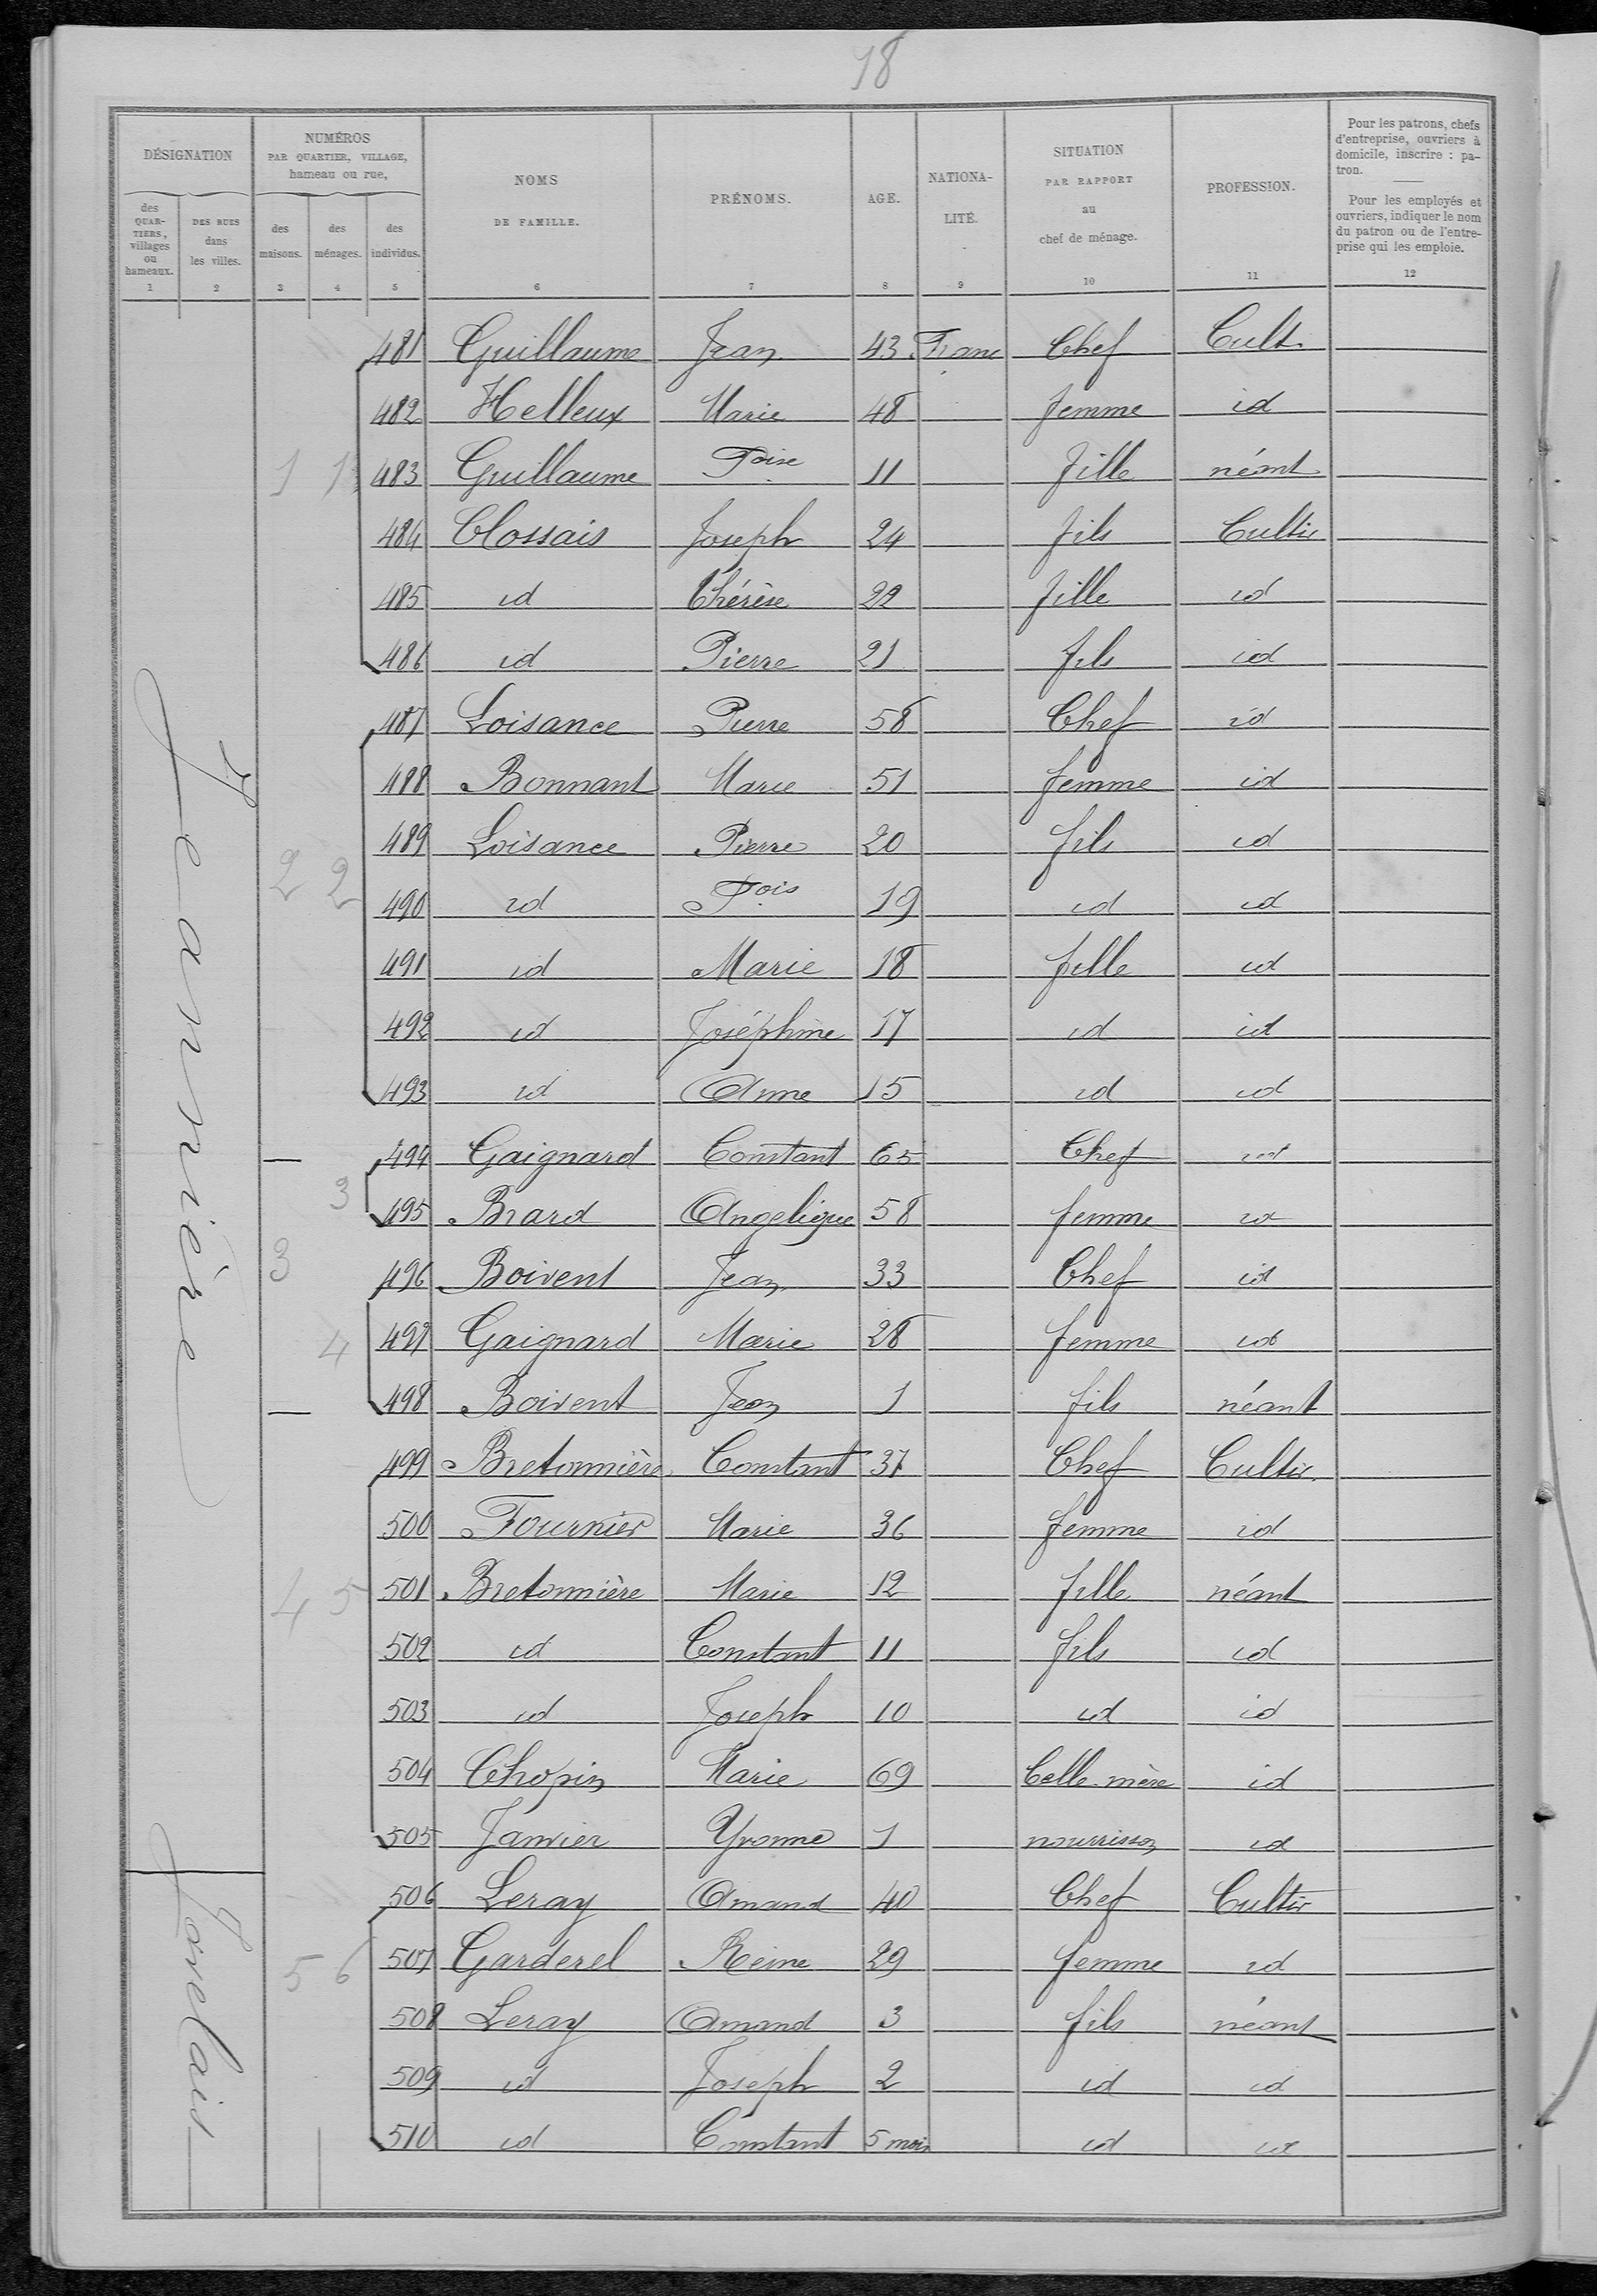 18
DÉSIGNATION
NUMÉROS
PAR QUARTIER, VILLAGE,
hameau ou rue,
des
QUAR-
TIERS,
villages
ou
hameaux.
DES RUES
dans
les villes.
des
maisons.
des
ménages.
des
individus.
NOMS
DE FAMILLE.
PRÉNOMS.
AGE.
NATIONA-
LITÉ.
SITUATION
PAR RAPPORT
au
chef de ménage.
PROFESSION.
Pour les patrons, chefs
d'entreprise, ouvriers à
domicile, inscrire : pa-
tron.
Pour les employés et
ouvriers, indiquer le nom
du patron ou de l'entre-
prise qui les emploie.
1 2 3 4 5 6 7 8 9 10 11 12
Jeannière
481 Guillaume Jean 43 Franc Chef Cult.
482 Helleux Marie 48 femme id
1 1 483 Guillaume Foise 11 fille néant
484 Clossais Joseph 24 fils Cultiv
485 id Thérèse 22 fille id
486 id Pierre 21 fils id
487 Loisance Pierre 58 Chef id
488 Bonnant Marie 51 femme id
489 Loisance Pierre 20 fils id
2 2 490 id Fois 19 id id
491 id Marie 18 fille id
492 id Joséphine 17 id id
493 id Anne 15 id id
494 Gaignard Constant 65 Chef id
3 495 Brard Angelique 58 femme id
3 496 Boivent Jean 33 Chef id
4 497 Gaignard Marie 28 femme id
498 Boivent Jean 1 fils néant
499 Bretonnière Constant 37 Chef Cultiv.
500 Fournier Marie 36 femme id
4 5 501 Bretonnière Marie 12 fille néant
502 id Constant 11 fils id
503 id Joseph 10 id id
504 Chopin Marie 69 belle-mère id
505 Janvier Yvonne 1 nourrisson id
Jovelais
506 Leray Amand 40 Chef Cultiv
5 6 507 Garderel Reine 29 femme id
508 Leray Amand 3 fils néant
509 id Joseph 2 id id
510 id Constant 5 mois id id